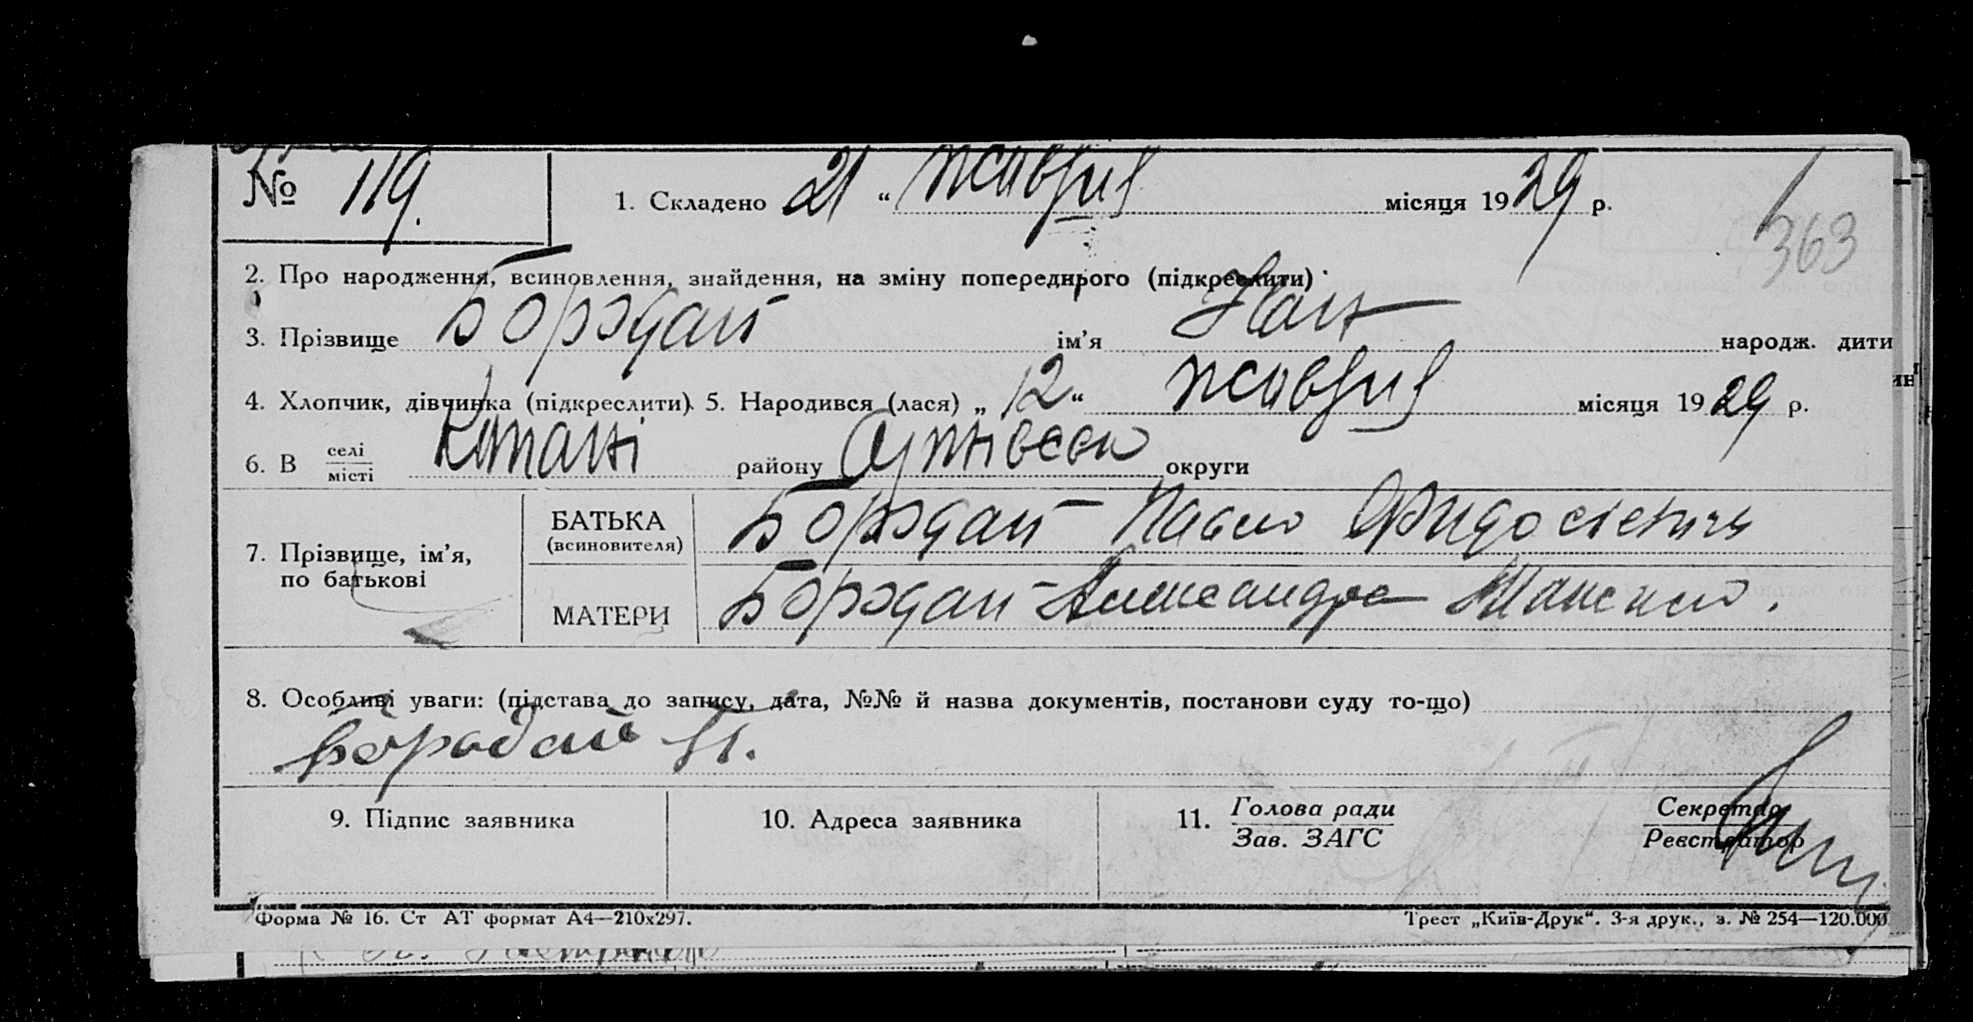 № 119.
1. Складено 21 “ жовтня місяця 1929 р.
363
2. Про народження, всиновлення, знайдення, на зміну попереднього (підкреслити)
3. Прізвище Бородай ім’я Іван народж. дити
4. Хлопчик, дівчинка (підкреслити). 5. Народився (лася) „ 12 “ жовтня місяця 1929 р.
6. В селі місті району округи
7. Прізвище, ім’я, по батькові
БАТЬКА (всиновителя) Бородай Павло Фидосієвич
МАТЕРИ Бородай Александра
8. Особливі уваги: (підстава до запису, дата, №№ й назва документів, постанови суду то-що)
Бородай П.
9. Підпис заявника 10. Адреса заявника 11. Голова ради Зав. ЗАГС Секретар Реєстратор
Форма № 16. Ст АТ формат А4—210х297. Трест „Київ-Друк“. 3-я друк., з. № 254—120.000